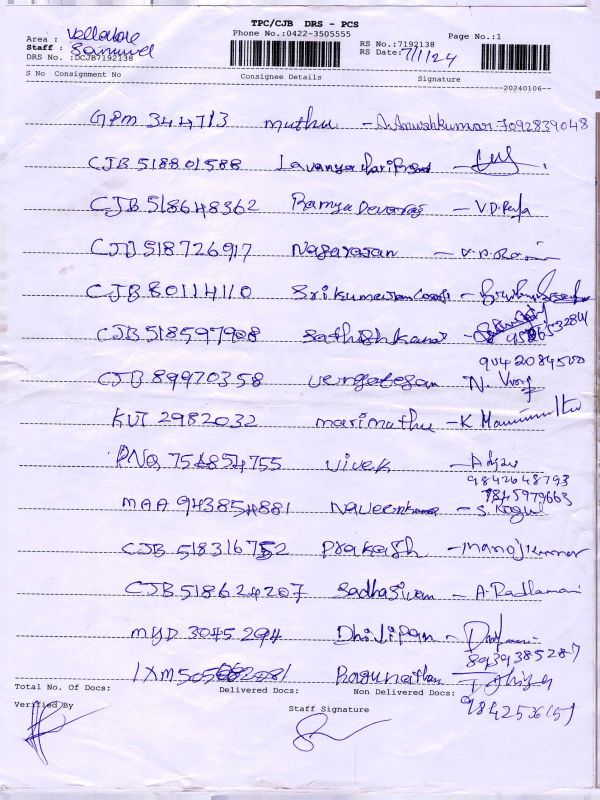 TPC/CJB DRS - PCS
Area : Vellalore
Phone No.:0422-3505555
Page No.:1
Staff : Samuvel
RS No.:7192138
DRS No.:DCJB7192138
RS Date:7/1/24
S No Consignment No Consignee Details Signature
20240106
GPM 344713 muthu - A. Anushkumar 7092839048
CJB 518801588 Lavanya
CJB 518648362 Ramya Devaraj - V.D.
CJB 518726917 Nagarajan - V.D.
CJB 80114110
CJB 518597908
9042084500
CJB 89970358 vengatesan N.
KUT 2982032 marimuthu - K
PNQ 754854755 vivek -
9842648793
7845979663
MAA 943854881 - S.
CJB 518316752 Prakash - Manoj
CJB 518624207 Sadhasivam - A.
MYD 3045294 Dhilipan -
8939385287
IXM Ragunathan
Total No. Of Docs: Delivered Docs: Non Delivered Docs:
Verified By Staff Signature